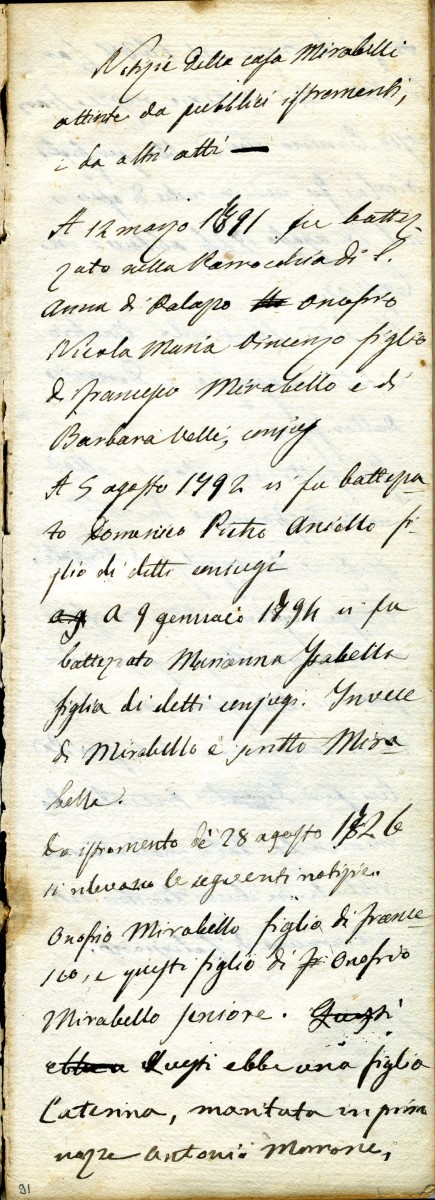 Notizie della casa Mirabelli
attinte da pubblici istromenti,
e da altri atti —
A 12 marzo 1791 fu battez-
zato nella Parrocchia di S.
Anna di Palazzo Onofrio
Nicola Maria Vincenzo figlio
di francesco Mirabello e di
Barbara Velli, conjugi
A 5 agosto 1792 vi fu battezza-
to Domenico Pietro Aniello fi-
glio di detti conjugi
A 9 gennaio 1794 vi fu
battezzato Marianna Isabella
figlia di detti conjugi. Invece
di Mirabello è scritto Mira-
bella.
Da istromento de' 28 agosto 1726
si rilevano le seguenti notizie.
Onofrio Mirabello figlio di france-
sco, e questi figlio di Onofrio
Mirabello seniore. Questi
ebbe Questi ebbe una figlia
Caterina, maritata in prime
nozze Antonio Morrone,
91